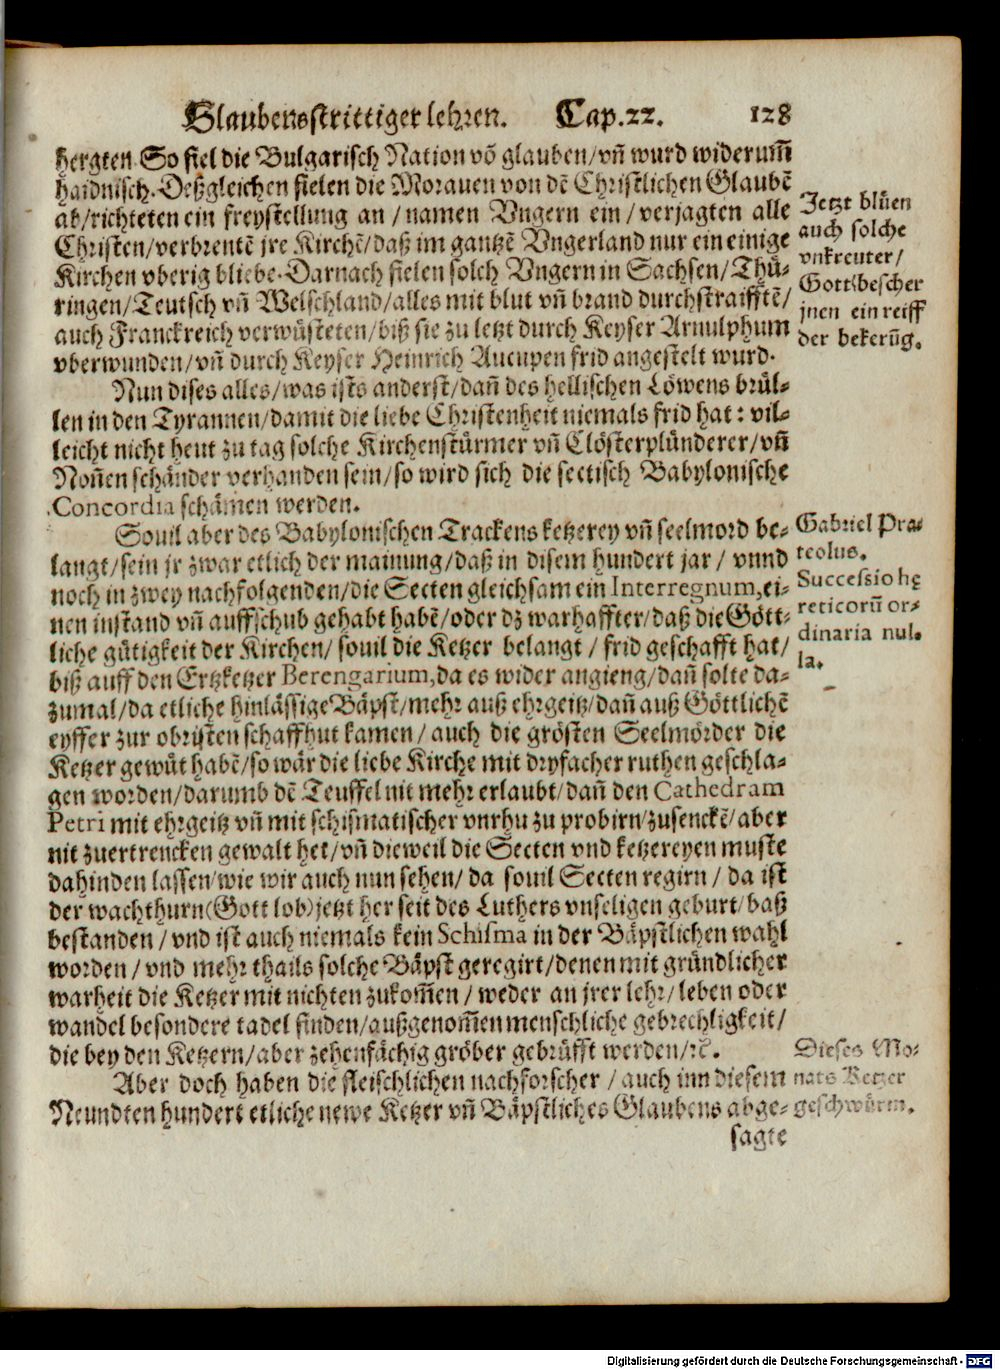 Glaubensstrittiger lehren. Cap.22. 128
hergten. So fiel die Bulgarisch Nation võ glauben/vñ wurd widerum̃
haidnisch. Deßgleichen fielen die Morauen von dẽ Christlichen Glaubẽ
ab/richteten ein freystellung an/namen Vngern ein/verjagten alle
Christen/verbrentẽ jre Kirchẽ/daß im gantzẽ Vngerland nur ein einige
Kirchen vberig bliebe. Darnach fielen solch Vngern in Sachsen/Thü-
ringen/Teutsch vñ Welschland/alles mit blut vñ brand durchstraifftẽ/
auch Franckreich verwüsteten/biß sie zu letzt durch Keyser Arnulphum
vberwunden/vñ durch Keyser Heinrich Aucupen frid angestelt wurd.
Jetzt blüen
auch solche
vnkreuter/
Gott bescher
jnen ein reiff
der bekerũg.
Nun dises alles/was ists anderst/dañ des hellischen Löwens brül-
len in den Tyrannen/damit die liebe Christenheit niemals frid hat: vil-
leicht nicht heut zu tag solche Kirchenstürmer vñ Clösterplünderer/vñ
Noñen schänder verhanden sein/so wird sich die sectisch Babylonische
Concordia schämen werden.
Souil aber des Babylonischen Trackens ketzerey vñ seelmord be-
langt/sein jr zwar etlich der mainung/daß in disem hundert jar/vnnd
noch in zwey nachfolgenden/die Secten gleichsam ein Interregnum, ei-
nen instand vñ auffschub gehabt habẽ/oder dz warhaffter/daß die Gött-
liche gütigkeit der Kirchen/souil die Ketzer belangt/frid geschafft hat/
biß auff den Ertzketzer Berengarium, da es wider angieng/dañ solte da-
zumal/da etliche hinlässige Bäpst/mehr auß ehrgeitz/dañ auß Göttlichẽ
eyffer zur obristen schaffhut kamen/auch die grösten Seelmörder die
Ketzer gewüt habẽ/so wär die liebe Kirche mit dryfacher ruthen geschla-
gen worden/darumb dẽ Teuffel nit mehr erlaubt/dañ den Cathedram
Petri mit ehrgeitz vñ mit schismatischer vnrhu zu probirn/zusenckẽ/aber
nit zuertrencken gewalt het/vñ dieweil die Secten vnd ketzereyen muste
dahinden lassen/wie wir auch nun sehen/da souil Secten regirn/da ist
der wachthurn (Gott lob) jetzt her seit des Luthers vnseligen geburt/baß
bestanden/vnd ist auch niemals kein Schisma in der Bäpstlichen wahl
worden/vnd mehr thails solche Bäpst geregirt/denen mit gründlicher
warheit die Ketzer mit nichten zukom̃en/weder an jrer lehr/leben oder
wandel besondere tadel finden/außgenom̃en menschliche gebrechligkeit/
die bey den Ketzern/aber zehenfächig gröber gebrüfft werden/ꝛc.
Gabriel Pra-
teolus.
Successio hę
reticorũ or-
dinaria nul-
la.
Aber doch haben die fleischlichen nachforscher/auch inn diesem
Neundten hundert etliche newe Ketzer vñ Bäpstliches Glaubens abge-
sagte
Dieses Mo-
nats Ketzer
geschwürm.
Digitalisierung gefördert durch die Deutsche Forschungsgemeinschaft - DFG